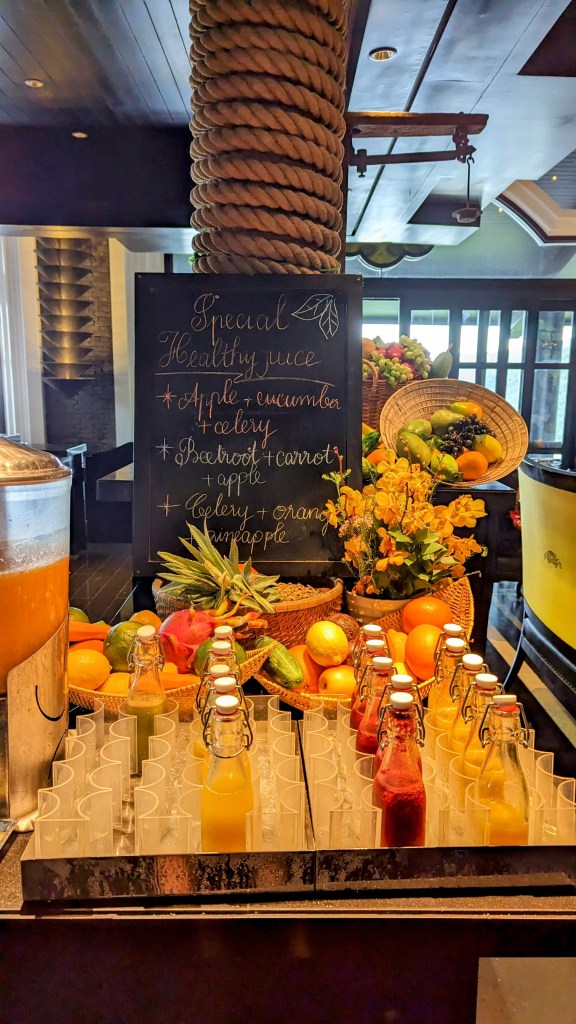 Special
Healthy juice
* Apple + cucumber
+ celery
* Beetroot + carrot
+ apple
* Celery + orange
+ pineapple